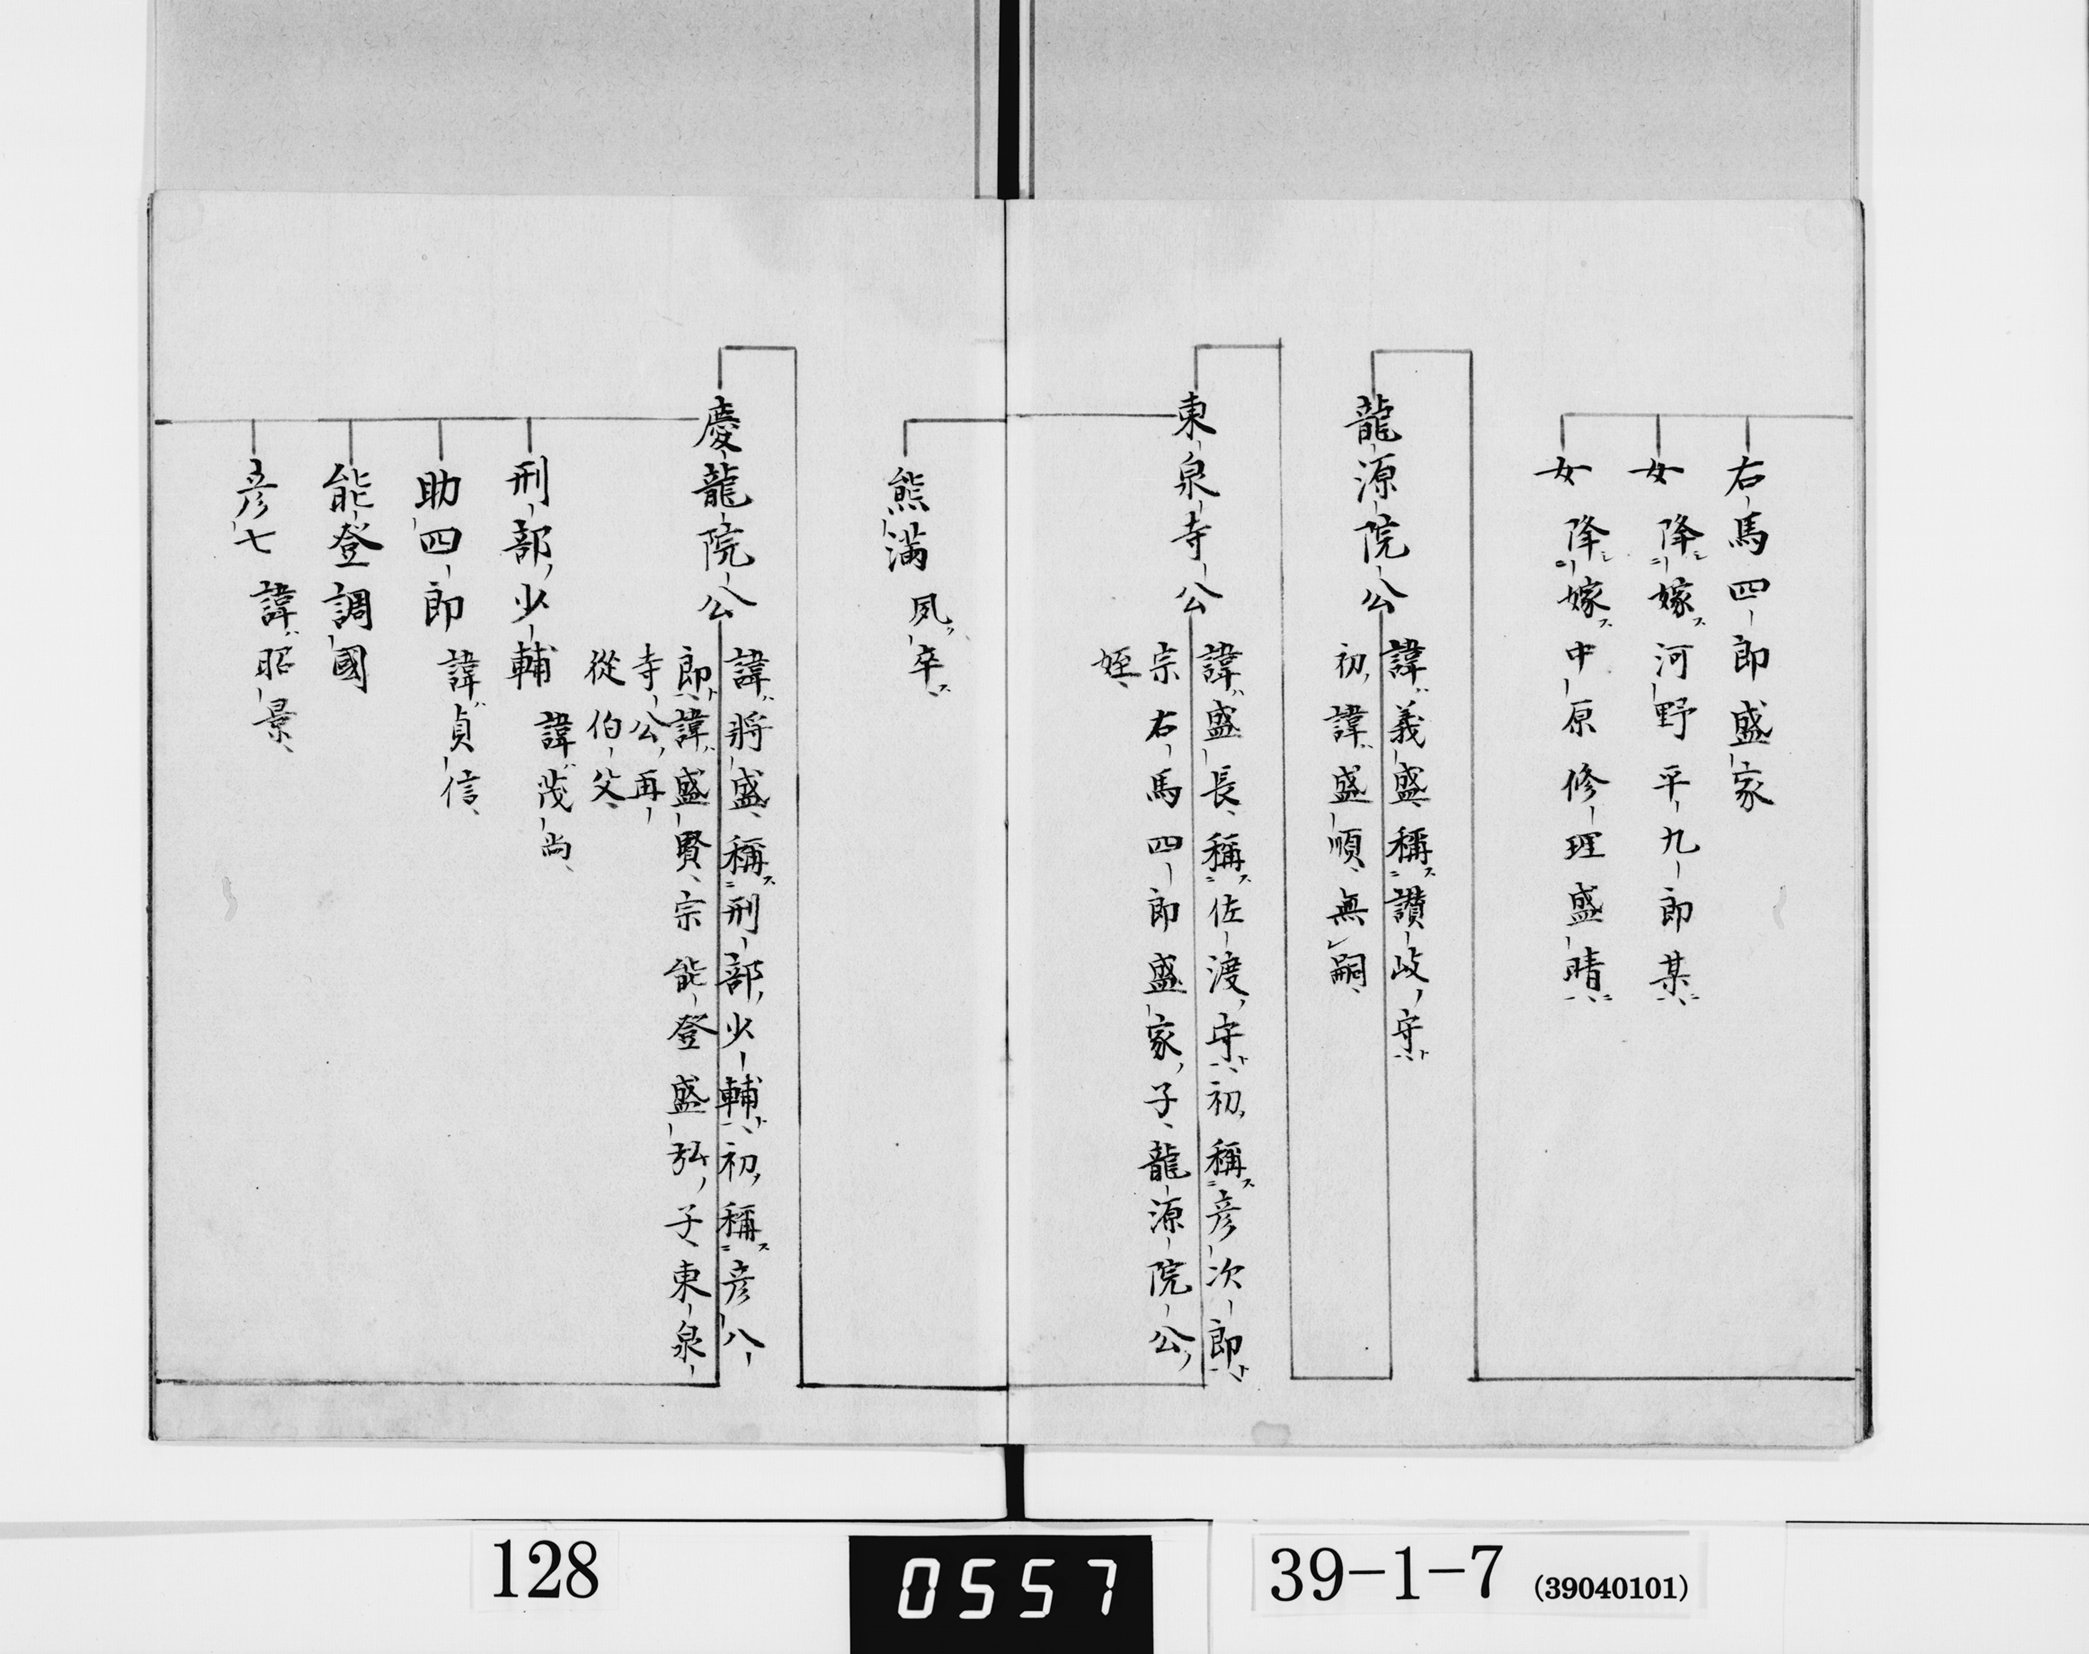 右馬四郎盛家
女 降嫁河野平九郎某
女 降嫁中原修理盛晴
龍源院公
諱義盛稱讃岐守
初諱盛順無嗣
東泉寺公
諱盛長稱佐渡守初稱彦次郎
宗右馬四郎盛家子龍源院公
姪
熊満 夙卒
慶龍院公
諱將盛稱刑部少輔初稱彦八
郎諱盛賢宗能登盛弘子東泉
寺公再
從伯父
刑部少輔 諱茂尚
助四郎 諱貞信
能登調國
彦七 諱昭景
128
0557
39-1-7 (39040101)